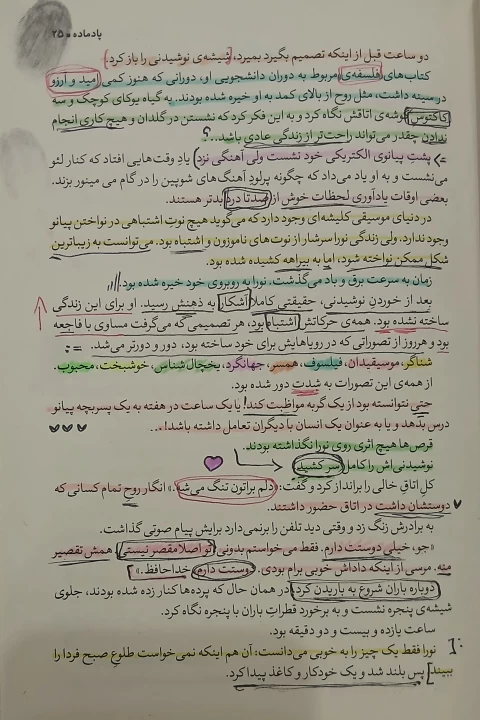 پادماده ● ۲۵
دو ساعت قبل از اینکه تصمیم بگیرد بمیرد، شیشه‌ی نوشیدنی را باز کرد.
کتاب‌های فلسفه‌ی مربوط به دوران دانشجویی او، دورانی که هنوز کمی امید و آرزو
در سینه داشت، مثل روح از بالای کمد به او خیره شده بودند. به گیاه یوکای کوچک و سه
کاکتوس گوشه‌ی اتاقش نگاه کرد و به این فکر کرد که نشستن در گلدان و هیچ کاری انجام
ندادن چقدر می‌تواند راحت‌تر از زندگی عادی باشد.
پشت پیانوی الکتریکی خود نشست ولی آهنگی نزد. یاد وقت‌هایی افتاد که کنار لئو
می‌نشست و به او یاد می‌داد که چگونه پرلود آهنگ‌های شوپین را در گام می مینور بزند.
بعضی اوقات یادآوری لحظات خوش از صدتا درد بدتر هستند.
در دنیای موسیقی کلیشه‌ای وجود دارد که می‌گوید هیچ نوتِ اشتباهی در نواختن پیانو
وجود ندارد. ولی زندگی نورا سرشار از نوت‌های ناموزون و اشتباه بود. می‌توانست به زیباترین
شکل ممکن نواخته شود، اما به بیراهه کشیده شده بود.
زمان به سرعت برق و باد می‌گذشت. نورا به روبروی خود خیره شده بود.
بعد از خوردنِ نوشیدنی، حقیقتی کاملا آشکار به ذهنش رسید. او برای این زندگی
ساخته نشده بود. همه‌ی حرکاتش اشتباه بود، هر تصمیمی که می‌گرفت مساوی با فاجعه
بود و هر روز از تصوراتی که در رویاهایش برای خود ساخته بود، دور و دورتر می‌شد.
شناگر، موسیقیدان، فیلسوف، همسر، جهانگرد، یخچال‌شناس، خوشبخت، محبوب.
از همه‌ی این تصورات به شدت دور شده بود.
حتی نتوانسته بود از یک گربه مواظبت کند! یا یک ساعت در هفته به یک پسربچه پیانو
درس بدهد و یا به عنوان یک انسان با دیگران تعامل داشته باشد!
قرص‌ها هیچ اثری روی نورا نگذاشته بودند.
نوشیدنی‌اش را کامل سر کشید.
کلِ اتاقِ خالی را برانداز کرد و گفت: «دلم براتون تنگ می‌شه.» انگار روح تمام کسانی که
دوستشان داشت در اتاق حضور داشتند.
به برادرش زنگ زد و وقتی دید تلفن را برنمی‌دارد برایش پیام صوتی گذاشت.
«جو، خیلی دوستت دارم. فقط می‌خواستم بدونی تو اصلا مقصر نیستی. همش تقصیر
منه. مرسی از اینکه داداش خوبی برام بودی. دوستت دارم. خداحافظ.»
دوباره باران شروع به باریدن کرد. در همان حال که پرده‌ها کنار زده شده بودند، جلوی
شیشه‌ی پنجره نشست و به برخورد قطراتِ باران با پنجره نگاه کرد.
ساعت یازده و بیست و دو دقیقه بود.
نورا فقط یک چیز را به خوبی می‌دانست: آن هم اینکه نمی‌خواست طلوع صبح فردا را
ببیند. پس بلند شد و یک خودکار و کاغذ پیدا کرد.